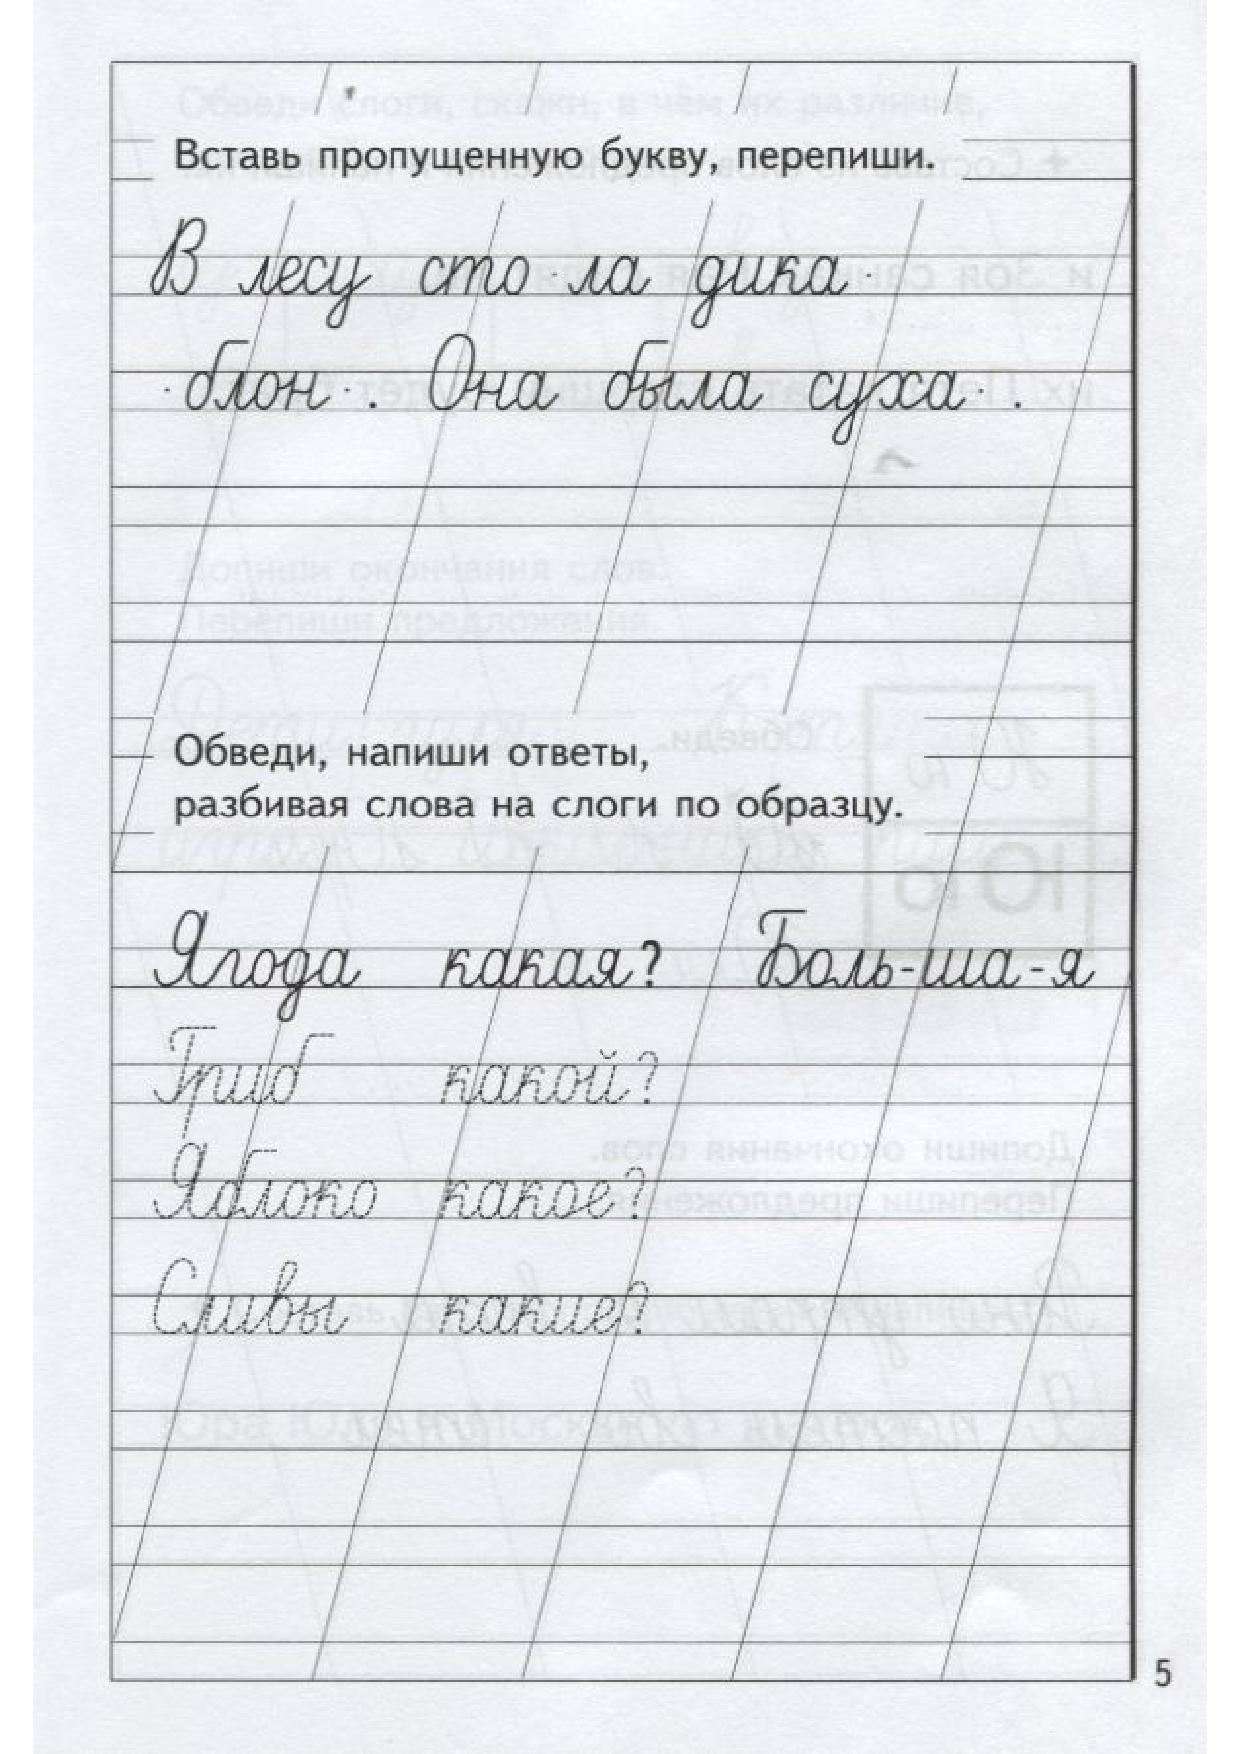 Вставь пропущенную букву, перепиши.
В лесу сто·ла дика·
·блон·. Она была суха·.
Обведи, напиши ответы,
разбивая слова на слоги по образцу.
Ягода какая? Боль-ша-я
Гриб какой?
Яблоко какое?
Сливы какие?
5